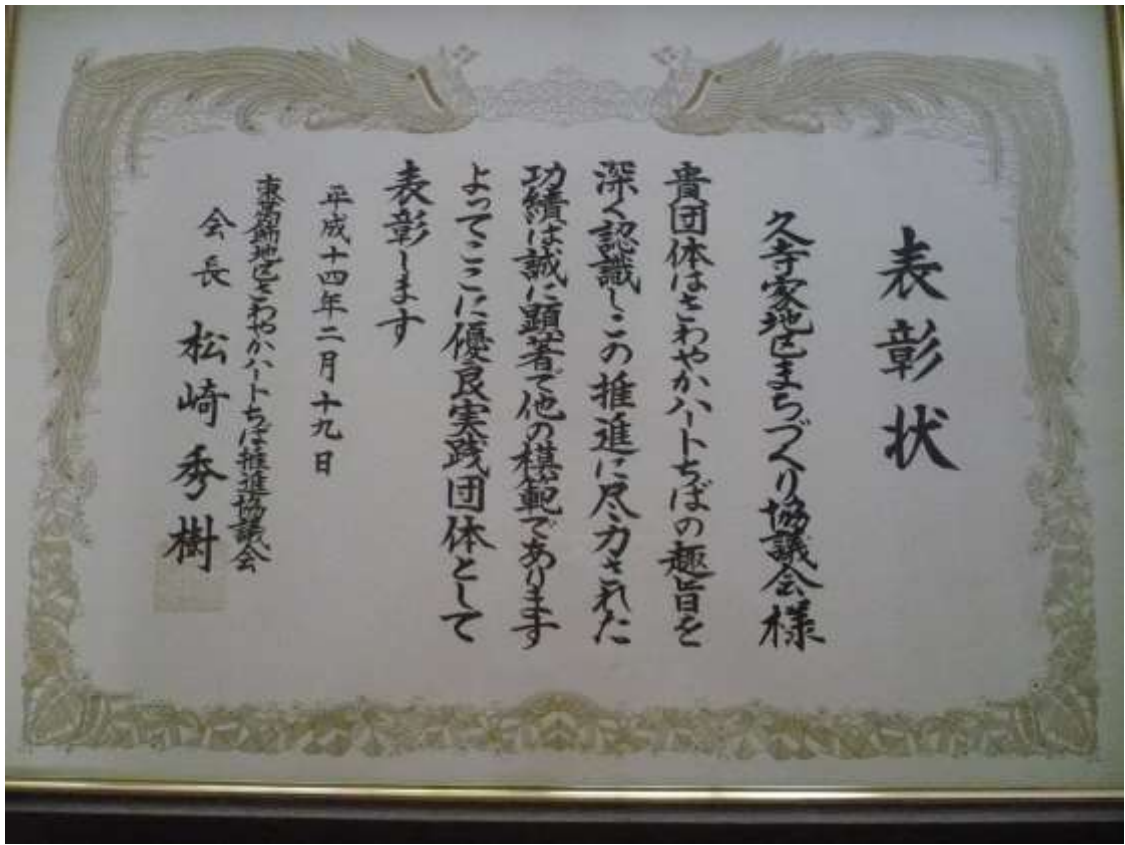 表彰状
久寺家地区まちづくり協議会様
貴団体はさわやかハートちばの趣旨を
深く認識しこの推進に尽力された
功績は誠に顕著で他の模範であります
よってここに優良実践団体として
表彰します
平成十四年二月十九日
東葛飾地区さわやかハートちば推進協議会
会長 松崎秀樹